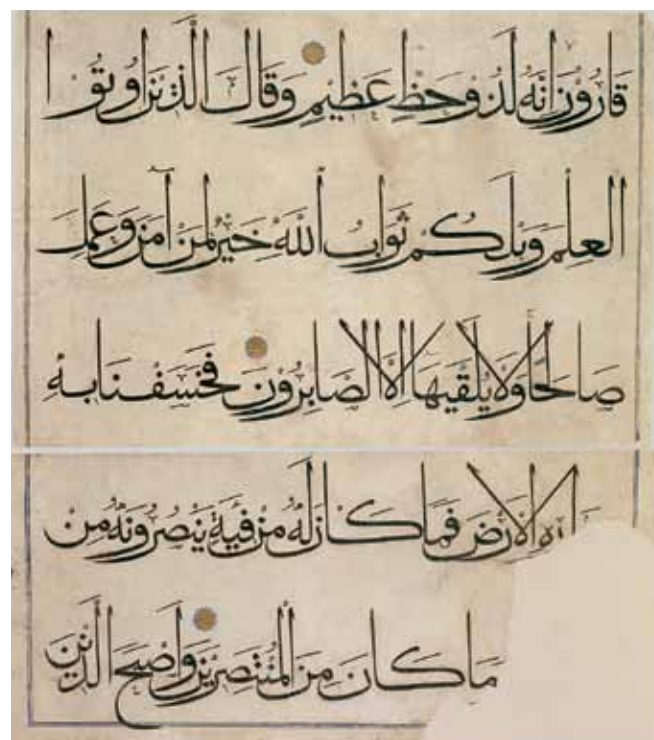 قَارُوْنُ اِنَّهُ لَذُوْ حَظٍّ عَظِيْمٍ وَقَالَ الَّذِيْنَ اُوْتُوا
العِلْمَ وَيْلَكُمْ ثَوَابُ اللّٰهِ خَيْرٌ لِمَنْ آمَنَ وَعَمِلَ
صَالِحًا وَلَا يُلَقَّيهَا اِلَّا الصَّابِرُوْنَ فَخَسَفْنَا بِهِ
الْاَرْضَ فَمَا كَانَ لَهُ مِنْ فِيَةٍ يَنْصُرُوْنَهُ مِنْ
مَا كَانَ مِنَ الْمُنْتَصِرِيْنَ وَاَصْبَحَ الَّذِيْنَ